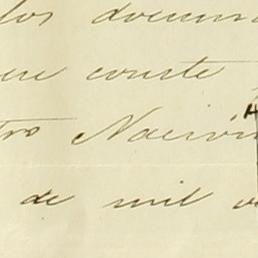 los docum
que conste
tro Nacio
de mil